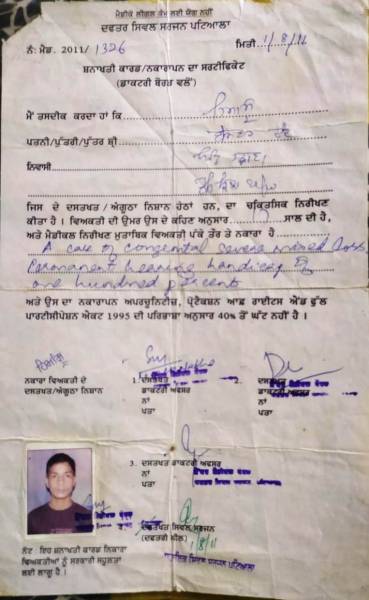 ਮੈਡੀਕੋ ਲੀਗਲ ਕੰਮ ਲਈ ਯੋਗ ਨਹੀਂ
ਦਫਤਰ ਸਿਵਲ ਸਰਜਨ ਪਟਿਆਲਾ
ਨੰ: ਮੈਡ. 2011/ 1326 ਮਿਤੀ 1/8/11
ਸ਼ਨਾਖਤੀ ਕਾਰਡ/ਨਕਾਰਾਪਨ ਦਾ ਸਰਟੀਫਿਕੇਟ
(ਡਾਕਟਰੀ ਬੋਰਡ ਵਲੋਂ)
ਮੈਂ ਤਸਦੀਕ ਕਰਦਾ ਹਾਂ ਕਿ
ਪਤਨੀ/ਪੁੱਤਰੀ/ਪੁੱਤਰ ਸ਼੍ਰੀ
ਨਿਵਾਸੀ
ਜਿਸ ਦੇ ਦਸਤਖਤ/ਅੰਗੂਠਾ ਨਿਸ਼ਾਨ ਹੇਠਾਂ ਹਨ, ਦਾ ਚਕਿਤਸਿਕ ਨਿਰੀਖਣ
ਕੀਤਾ ਹੈ । ਵਿਅਕਤੀ ਦੀ ਉਮਰ ਉਸ ਦੇ ਕਹਿਣ ਅਨੁਸਾਰ ਸਾਲ ਦੀ ਹੈ,
ਅਤੇ ਮੈਡੀਕਲ ਨਿਰੀਖਣ ਮੁਤਾਬਿਕ ਵਿਅਕਤੀ ਪੱਕੇ ਤੌਰ ਤੇ ਨਕਾਰਾ ਹੈ
A case of congenital severe mixed loss
Permanent hearing handicap
one hundred percent
ਅਤੇ ਉਸ ਦਾ ਨਕਾਰਾਪਨ ਅਪਰਚੂਨਿਟੀਜ਼, ਪ੍ਰੋਟੈਕਸ਼ਨ ਆਫ ਰਾਈਟਸ ਐਂਡ ਫੁੱਲ
ਪਾਰਟੀਸੀਪੇਸ਼ਨ ਐਕਟ 1995 ਦੀ ਪਰਿਭਾਸ਼ਾ ਅਨੁਸਾਰ 40% ਤੋਂ ਘੱਟ ਨਹੀਂ ਹੈ ।
ਨਕਾਰਾ ਵਿਅਕਤੀ ਦੇ
ਦਸਤਖਤ/ਅੰਗੂਠਾ ਨਿਸ਼ਾਨ
1. ਦਸਤਖਤ
ਡਾਕਟਰੀ ਅਫਸਰ
ਨਾਂ
ਪਤਾ
2. ਦਸਤਖਤ
ਡਾਕਟਰੀ ਅਫਸਰ
ਨਾਂ
ਪਤਾ
3. ਦਸਤਖਤ ਡਾਕਟਰੀ ਅਫਸਰ
ਨਾਂ
ਪਤਾ
ਦਸਤਖਤ ਸਿਵਲ ਸਰਜਨ
(ਦਫਤਰੀ ਸੀਲ) 1/8/11
ਸਿਵਲ ਸਰਜਨ ਪਟਿਆਲਾ
ਨੋਟ : ਇਹ ਸ਼ਨਾਖਤੀ ਕਾਰਡ ਨਕਾਰਾ
ਵਿਅਕਤੀਆਂ ਨੂੰ ਸਰਕਾਰੀ ਸਹੂਲਤਾਂ
ਲਈ ਲਾਗੂ ਹੈ ।